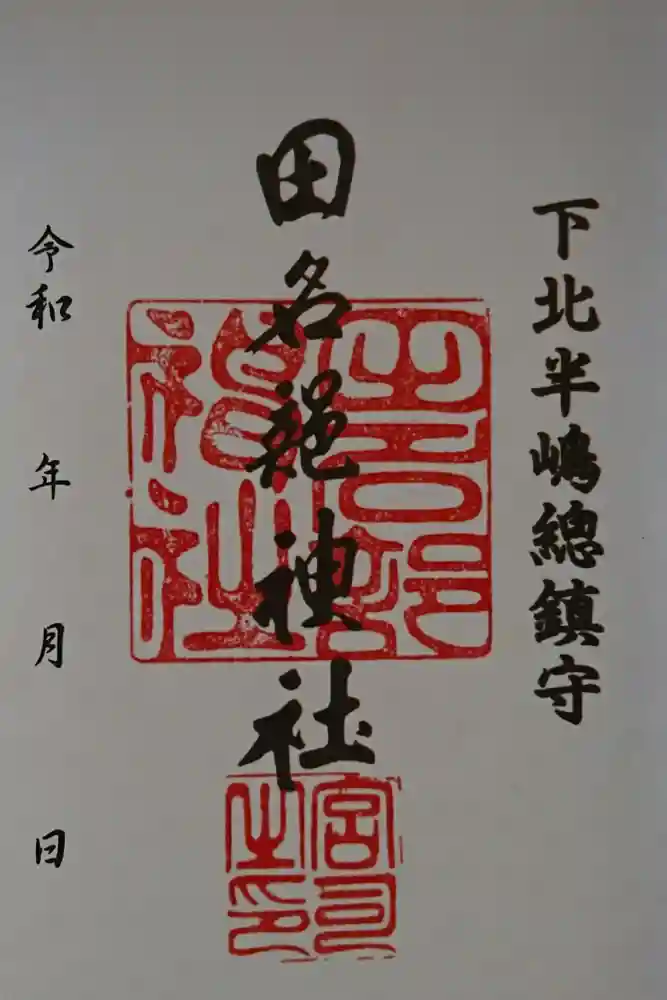 下北半嶋總鎮守
田名部神社
宮司之印
令和 年 月 日